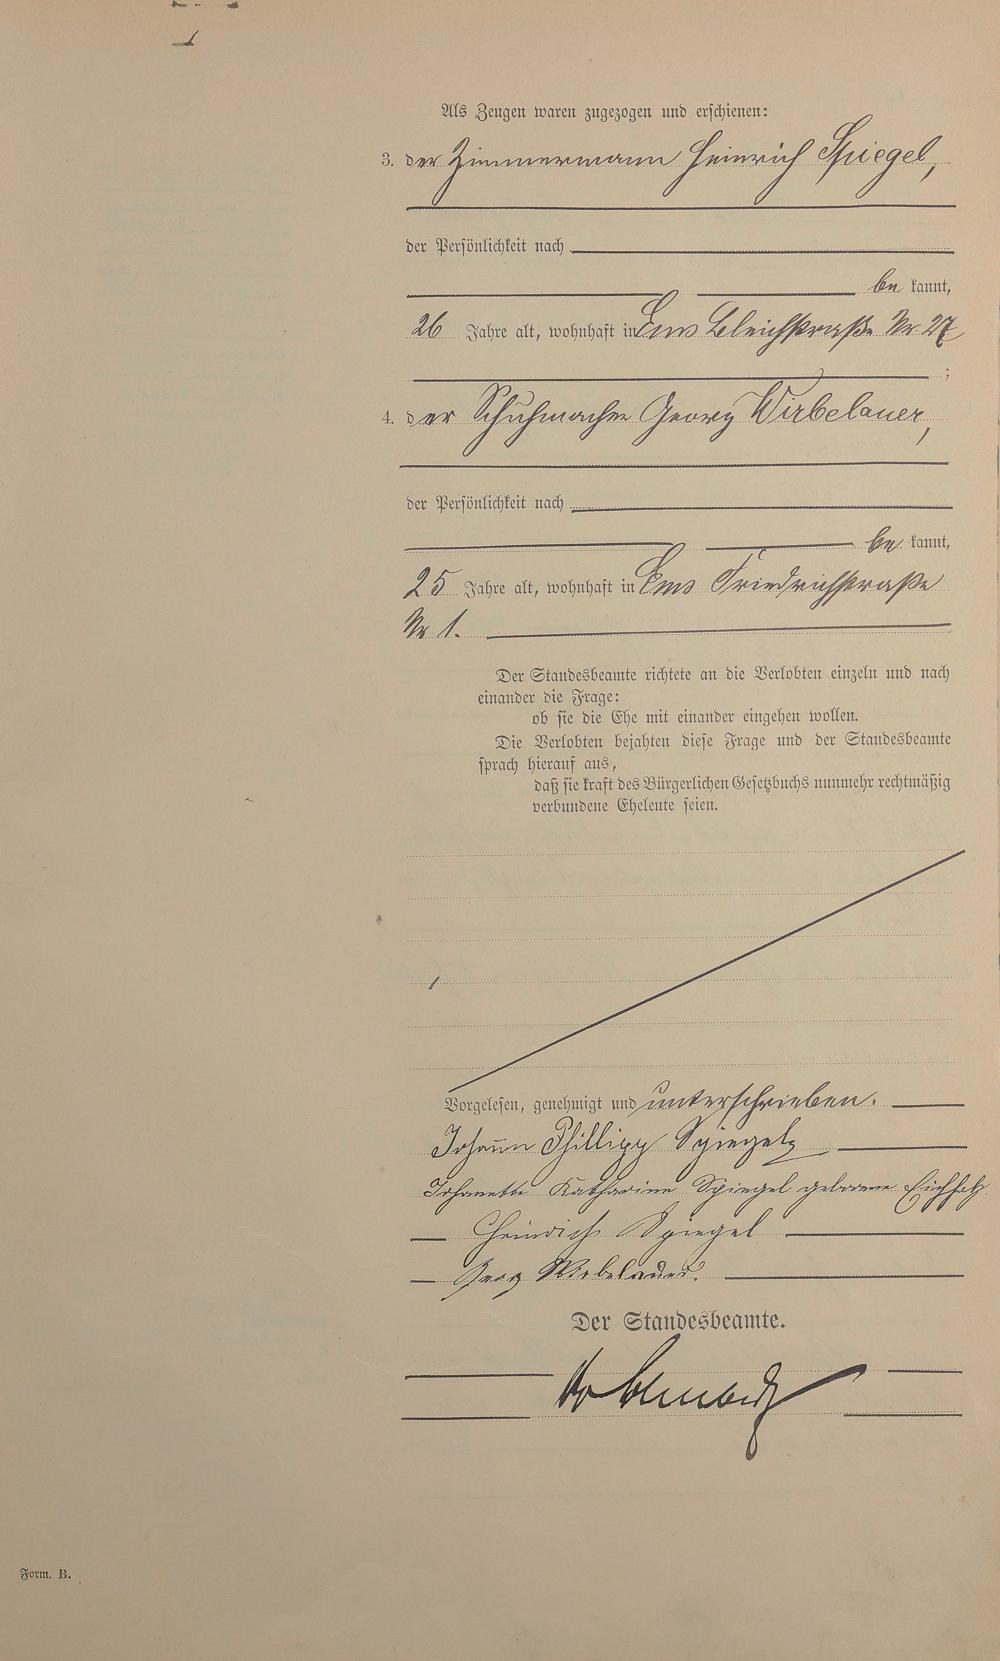 Als Zeugen waren zugezogen und erschienen:
3. der Zimmermann Heinrich Spiegel,
der Persönlichkeit nach
be kannt,
26 Jahre alt, wohnhaft in Ems Bleichstraße Nr 27
;
4. der Schuhmacher Georg Wirbelauer,
der Persönlichkeit nach
be kannt,
25 Jahre alt, wohnhaft in Ems Friedrichstraße
Nr 1.
Der Standesbeamte richtete an die Verlobten einzeln und nach
einander die Frage:
ob sie die Ehe mit einander eingehen wollen.
Die Verlobten bejahten diese Frage und der Standesbeamte
sprach hierauf aus,
daß sie kraft des Bürgerlichen Gesetzbuchs nunmehr rechtmäßig
verbundene Eheleute seien.
Vorgelesen, genehmigt und unterschrieben.
Johann Phillipp Spiegel
Johanette Katharine Spiegel geborene Eichholz
Heinrich Spiegel
Georg Wirbelauer.
Der Standesbeamte.
Form. B.